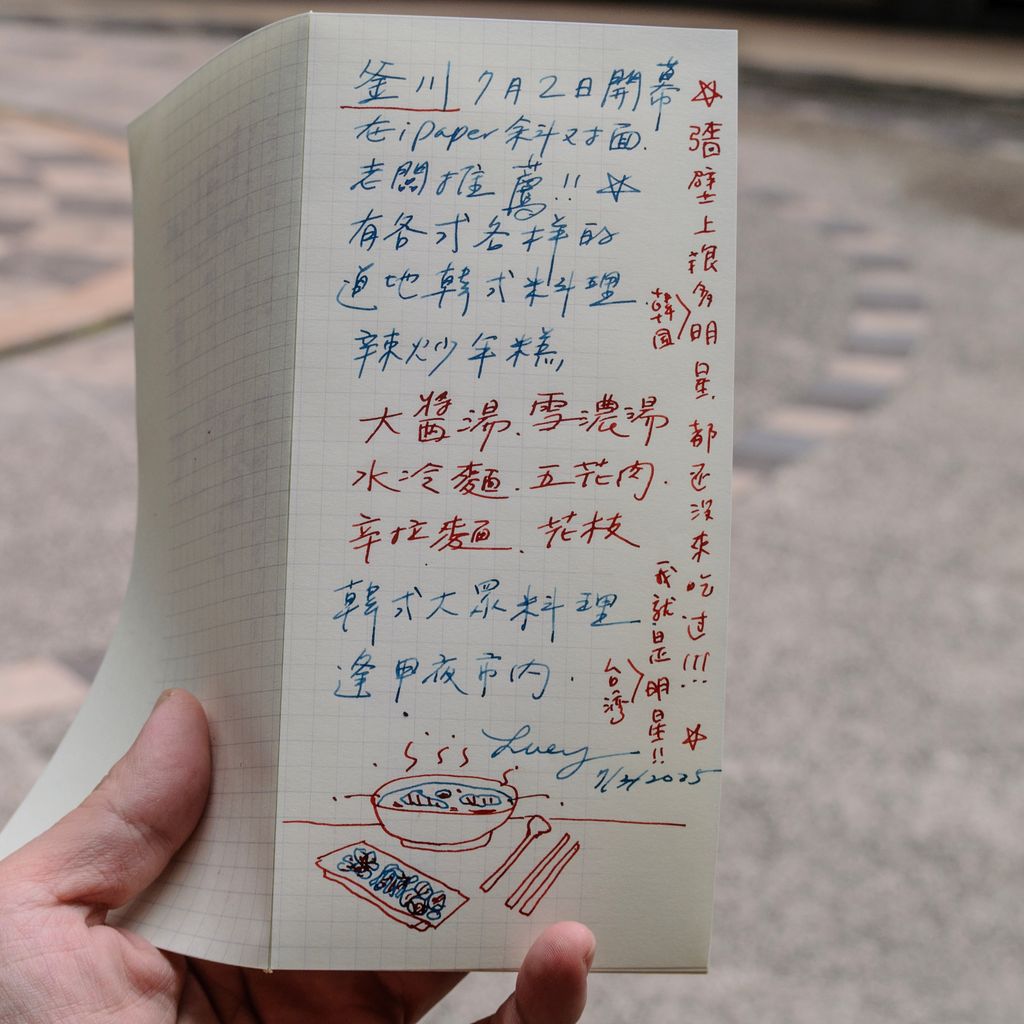 釜川 7月2日開幕
在ipaper斜对面.
老闆推薦!!
有各式各样的
道地韓式料理
辣炒年糕,
大醬湯.雪濃湯
水冷麵.五花肉.
辛拉麵.花枝
韓式大眾料理
逢甲夜市内.
Lucy
7/3/2025
墻壁上很多明星,都还没來吃过!!!
韓国
我就是明星!!
台灣